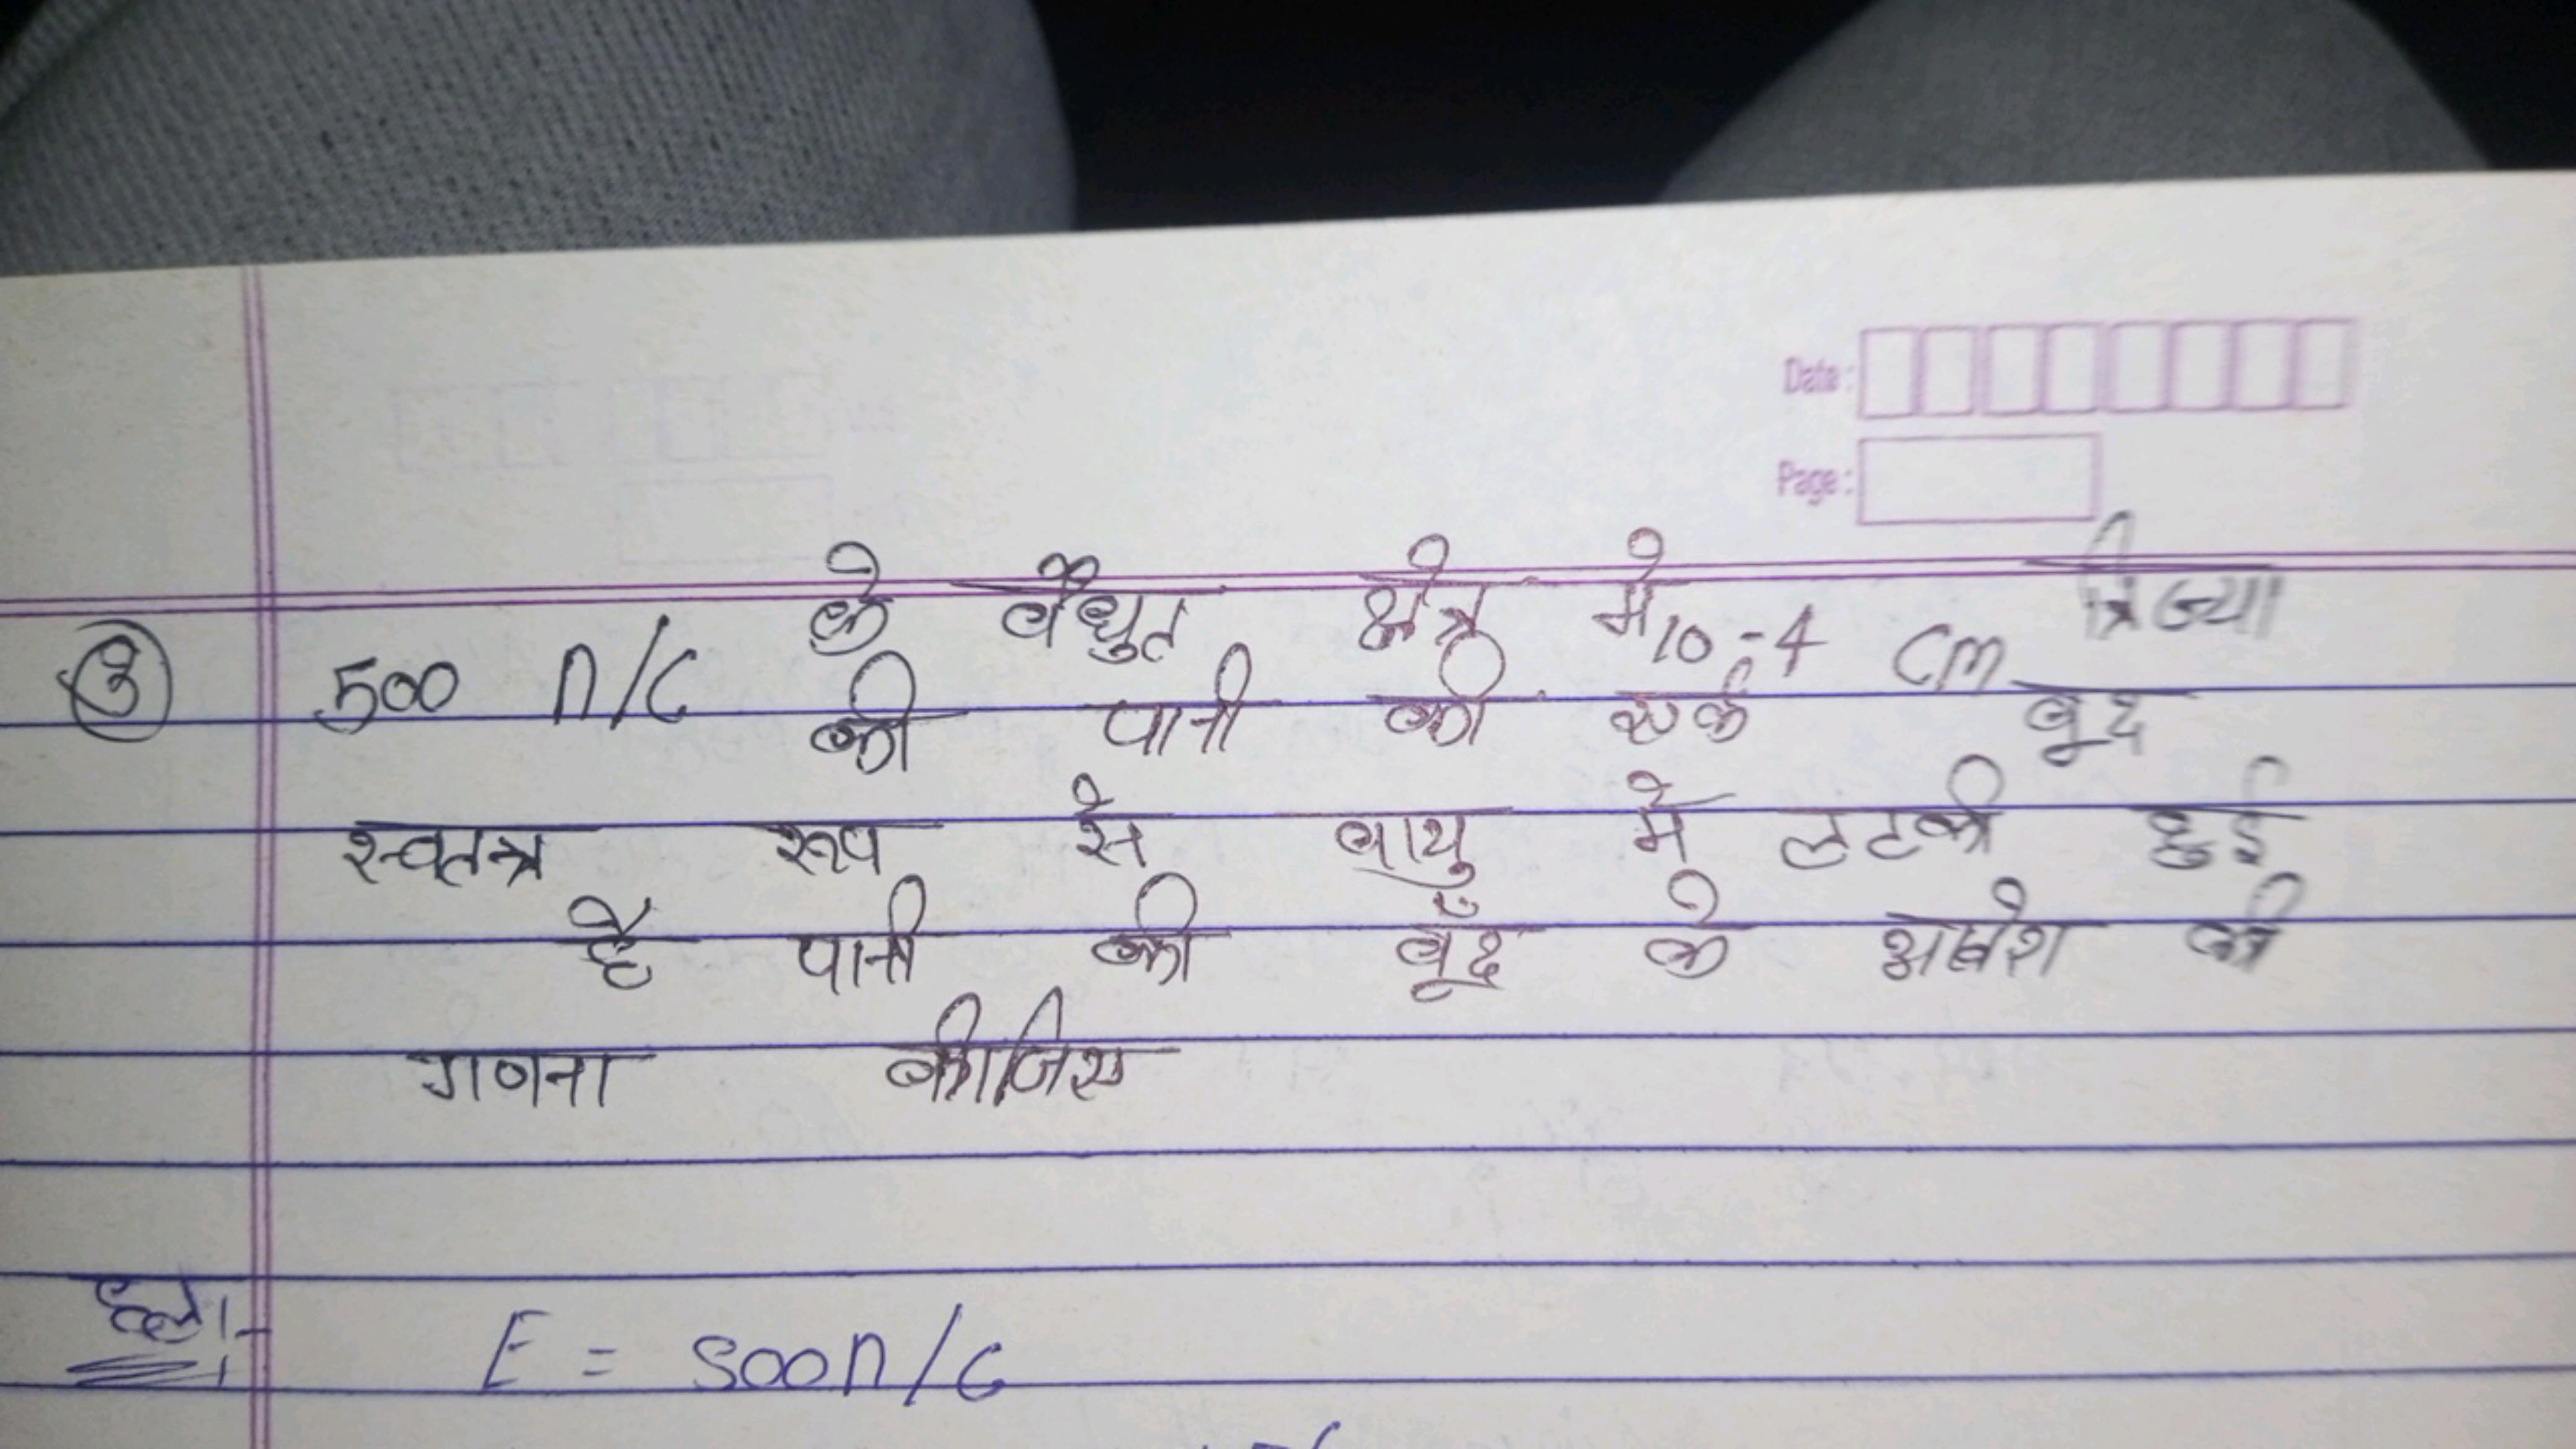 Date :
Page :
③ 500 n/c के वैधुत क्षेत्र मे 10-4 cm त्रिज्या
की पानी की एक बूद
स्वतन्त्र रूप से वायु में लटकी हुई
है पानी की बूँद के आवेश की
गणना कीजिए
हल:-
E = 500n/c